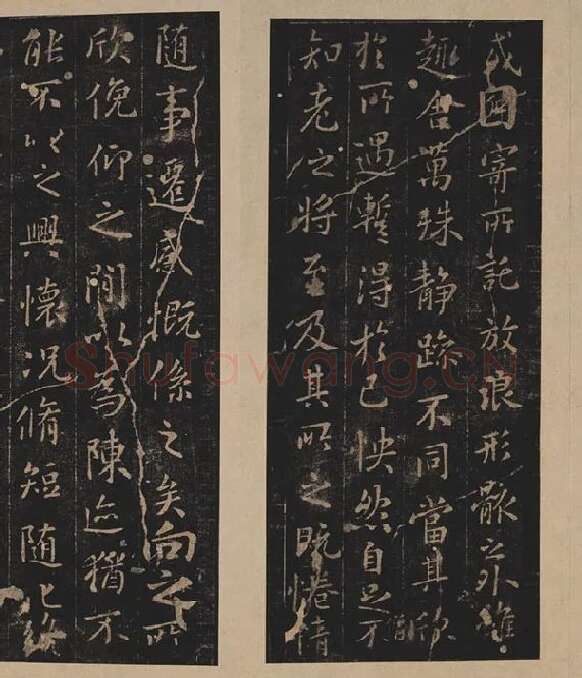 或因寄所託放浪形骸之外雖
趣舍萬殊静躁不同當其欣
於所遇暫得於己怏然自足不
知老之將至及其所之既惓情
随事遷感慨係之矣向之所
欣俛仰之間以為陳迹猶不
能不以之興懷況脩短随化終
Shufawang.cn